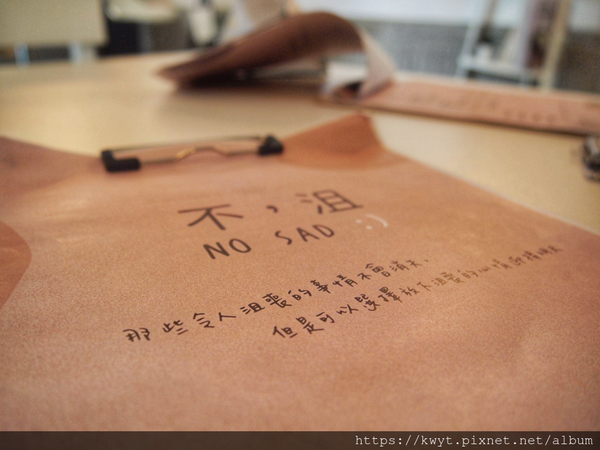 不，沮
NO SAD :)
那些令人沮喪的事情不會消失，
但是可以選擇放下沮喪的心情
https://kwyt.pixnet.net/album